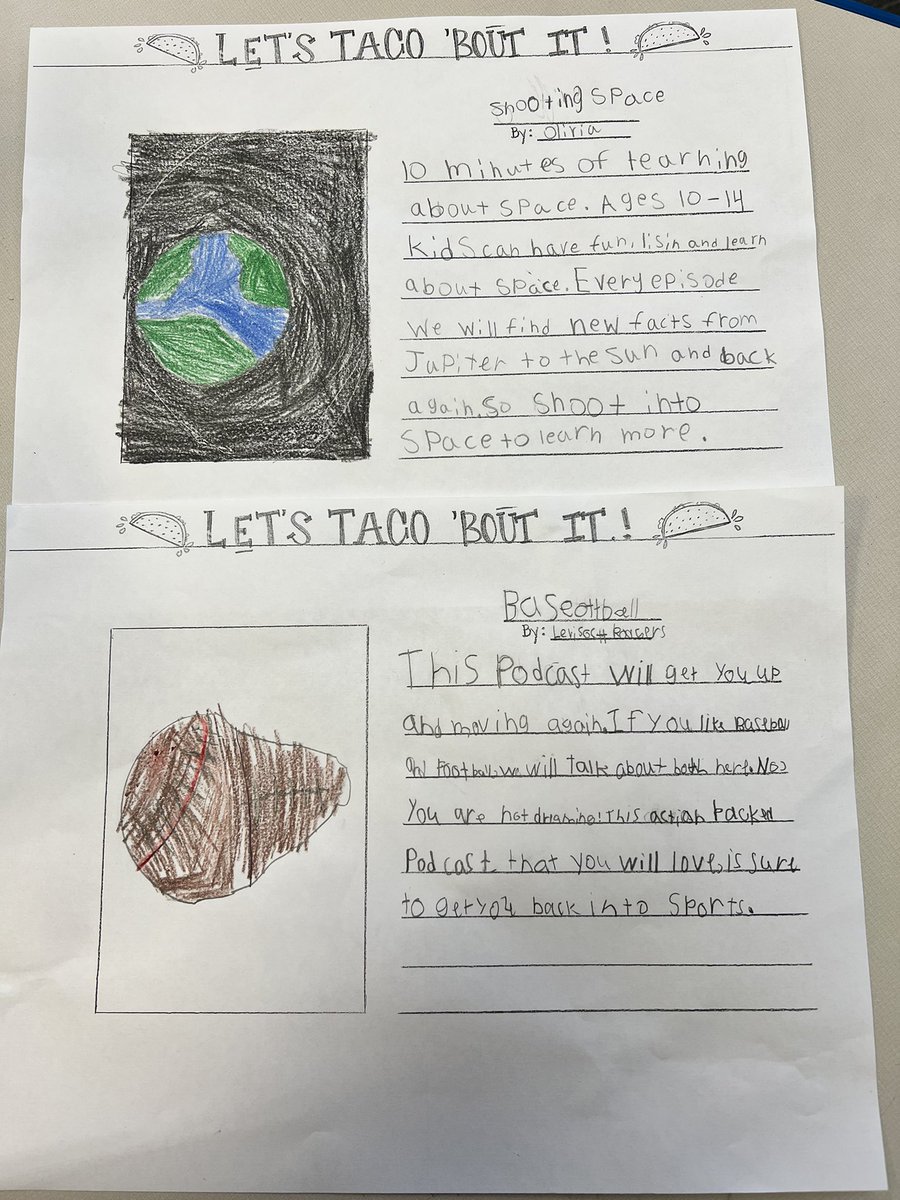 LET'S TACO 'BOŪT IT!
Shooting SPace
By: Olivia
10 minutes of learning
about space. Ages 10-14
Kids can have fun, lisin and learn
about space. Every episode
We will find new facts from
Jupiter to the sun and back
again. So shoot into
Space to learn more.
LET'S TACO 'BOŪT IT!
Baseottball
By:
This Podcast will get you up
and moving again. If you like Baseball
and Football, we will talk about both here. No
You are not dreaming! This action Packed
Podcast that you will love, is sure
to get you back into Sports.